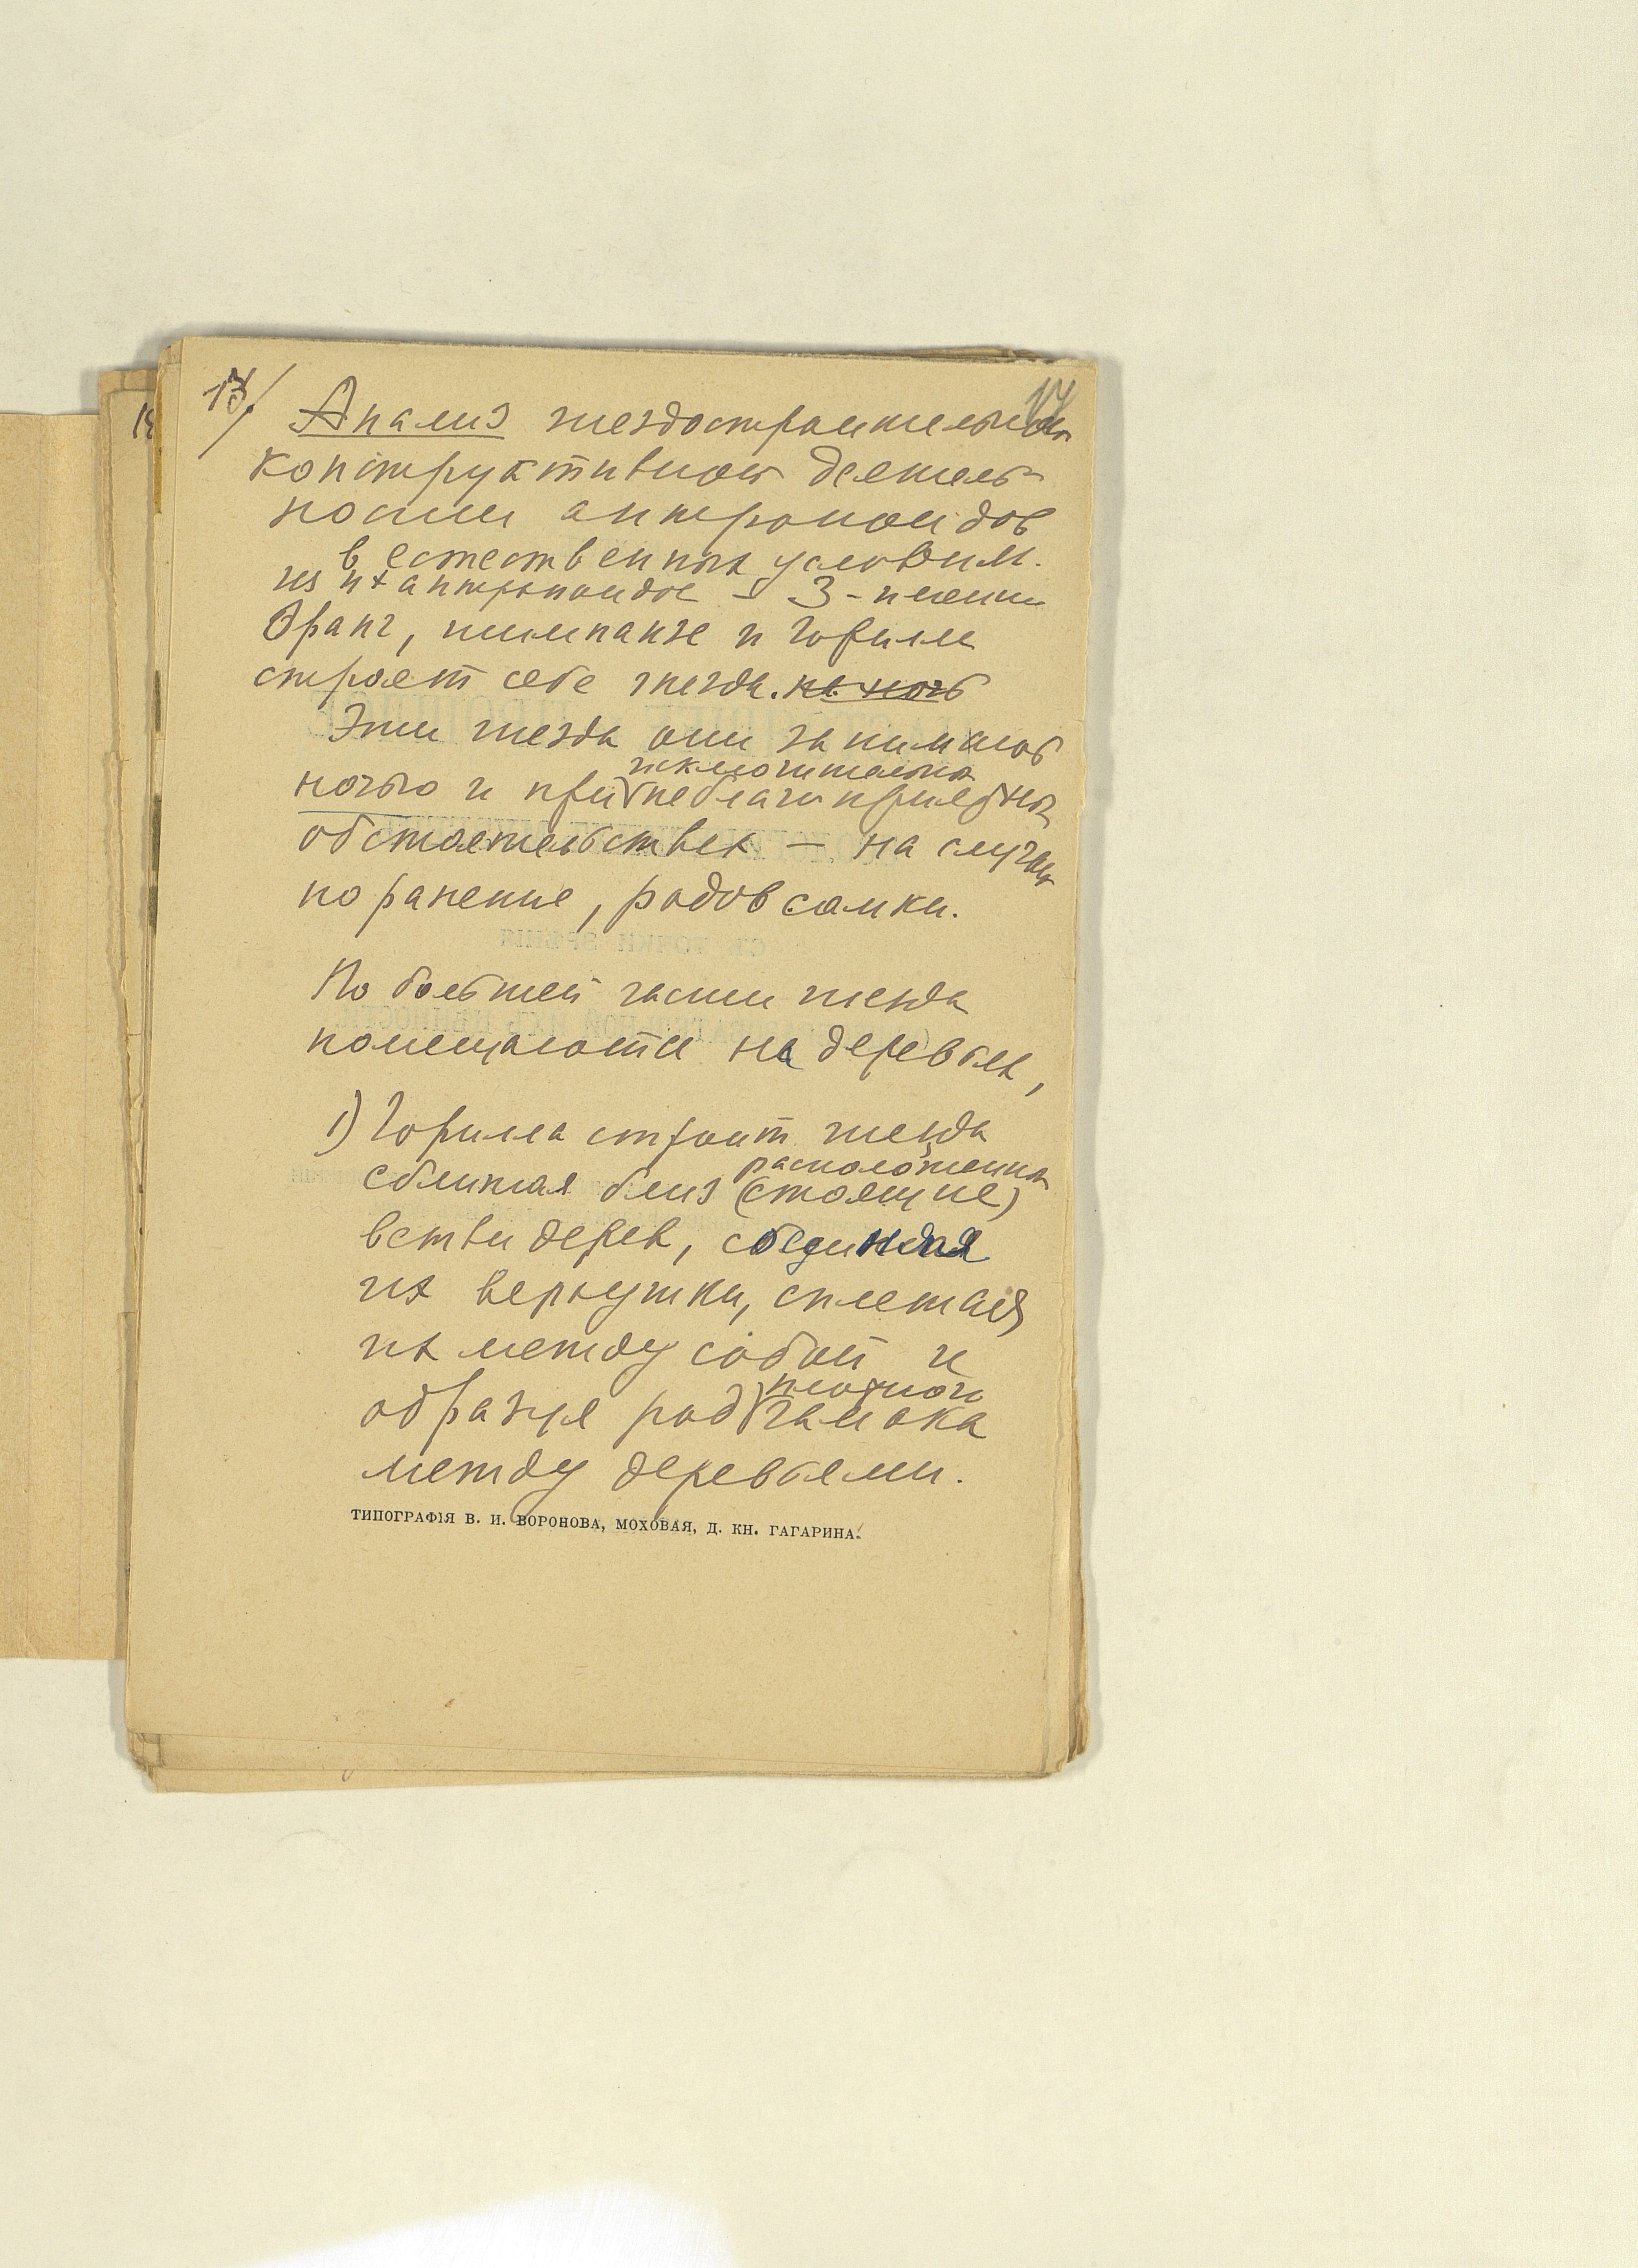 13/ 17
Анализ гнездостроительной
конструктивной деятель-
ности антропоидов
в естественных условиях.
из их антропоидов - 3-
Оранг, шимпанзе и горилла
строят себе гнезда. на ночь
Эти гнезда они занимают
исключительно
ночью и при неблагоприятных
обстоятельствах — на случай
поранение, родов самки.
По большей части гнезда
помещаются на деревьях,
1) Горилла строит гнезда
расположенные
сближая близ (стоящие)
ветви дерев, соединяя
их верхушки, сплетая
их между собой и
плотного
образуя род гамака
между деревьями.
ТИПОГРАФІЯ В. И. ВОРОНОВА, МОХОВАЯ, Д. КН. ГАГАРИНА.